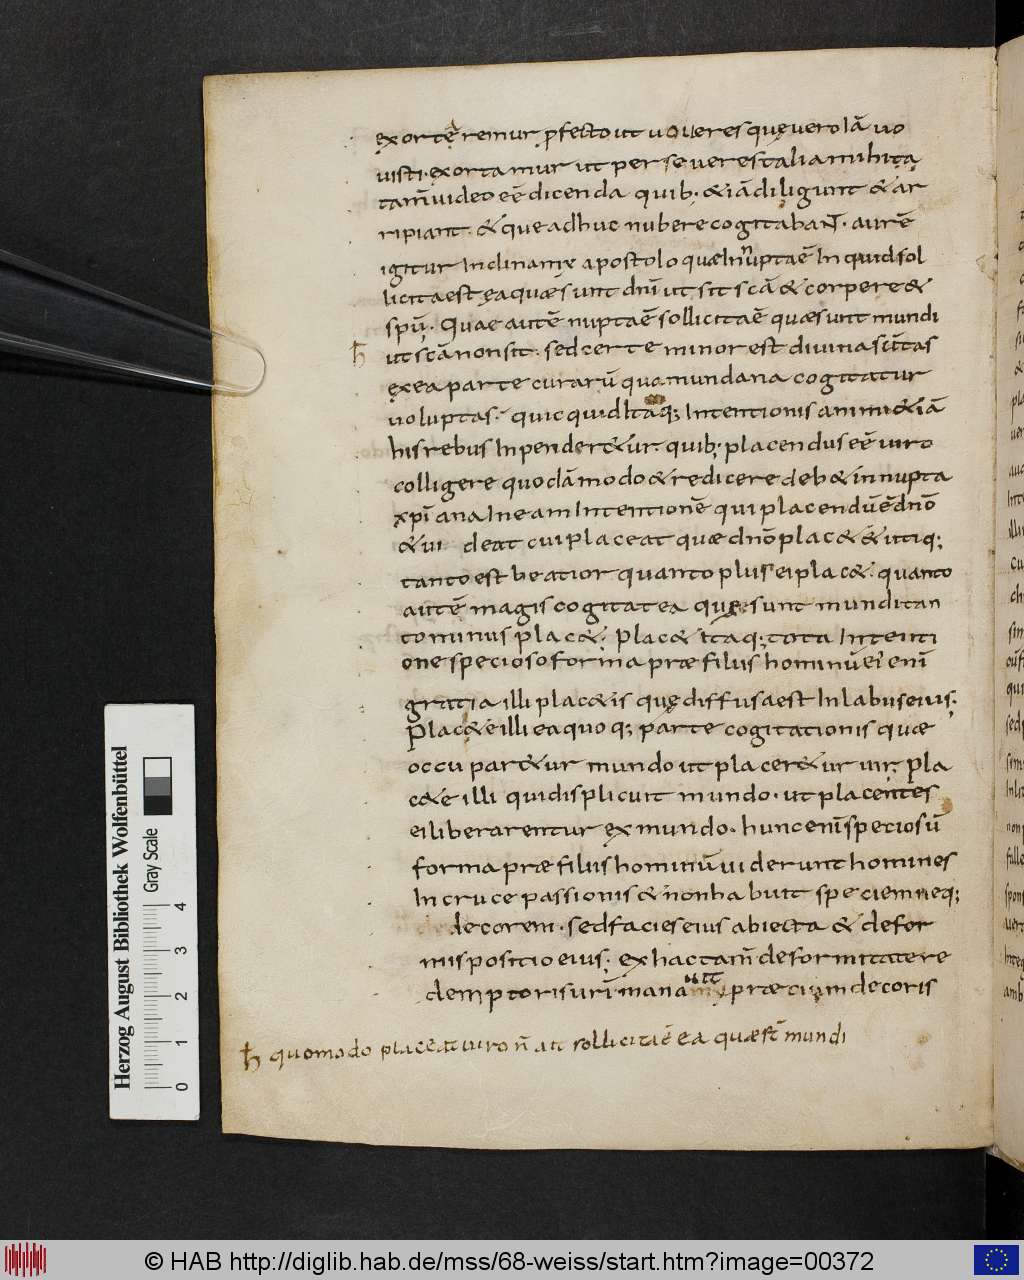 exortęremur ꝑfecto ut uoueres quę uero iā uo
uisti · exortamur ut perseueres talia mihi ta
tam̄ uideo eē dicenda quib· & iā diligunt & ar
ripiant · & que adhuc nubere cogitaban̄t · aurē
igitur incliname apostolo quæ innuptaē in quid sol
licita est ea quæ sunt dn̄i ut sit sc̄a & corpere &
spū · Quae autē nuptaē sollicitaē quæ sunt mundi
ħ ut sc̄a non sit · sed certe minor est diuina sc̄itas
ex ea parte curarū qua mundana cogitatur
uoluptas · quicquid itaq; intentionis animi & iā
his rebus inpender&ur · quib; placendus eē uiro
colligere quodāmodo & redicere deb& innupta
xp̄iana in eam intentionē qui placendū ē dn̄o
& ui deat cui placeat quæ dn̄o plac& & utiq;
tanto est beatior quanto plus ei plac& · quanto
autē magis cogitat ea quę sunt mundi tan
to minus plac& · Plac& itaq; tota intenti
one specioso forma præ filiis hominū ei enī
gratia illi plac& is quę diffusa est in labus eius ·
Plac& e illi ea quoq; parte cogitationis quæ
occupar&ur mundo ut placer&ur uir · Pla
c& e illi qui displicuit mundo · ut placentes
ei liberarentur ex mundo · hunc enī speciosū
forma præ filiis hominū uiderunt homines
in cruce passionis & non habuit speciem neq;
decorem · sed facies eius abiecta & defor
mis positio eius · ex hac tam̄ deformitate re
demptoris uri manauit præcium decoris
ħ quomodo placeat uiro n̄ an sollicitaē ea quæ st̄ mundi
Herzog August Bibliothek Wolfenbüttel
Gray Scale
0 1 2 3 4
© HAB http://diglib.hab.de/mss/68-weiss/start.htm?image=00372